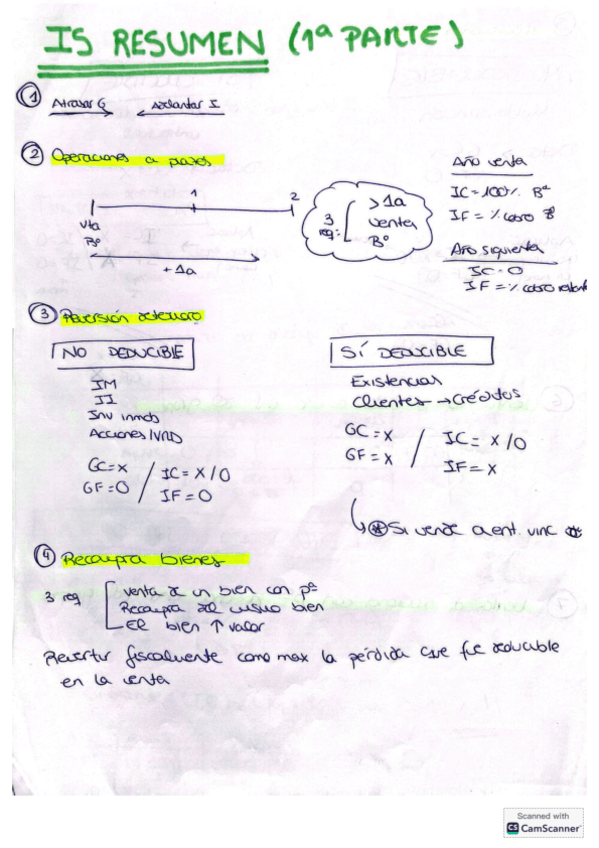 IS RESUMEN (1ª PARTE)
① Atrasar G Adelantar I
② Operaciones a plazos
1 2
Vta
Bº
+ 1a
3 req:
> 1a
venta
Bº
Año venta
IC = 100% Bº
IF = % cobro Bº
Año siguiente
IC = 0
IF = % cobro
③ Reversión deterioro
NO DEDUCIBLE
IM
II
Inv inmob
Acciones/VRD
GC = X / IC = X/0
GF = 0 / IF = 0
SÍ DEDUCIBLE
Existencias
Clientes → Créditos
GC = X / IC = X/0
GF = X / IF = X
Si vende a ent. vinc
④ Recompra bienes
3 req
venta de un bien con pº
Recompra del mismo bien
El bien ↑ valor
Revertir fiscalmente como max la pérdida que fue deducible
en la venta
Scanned with
CS CamScanner